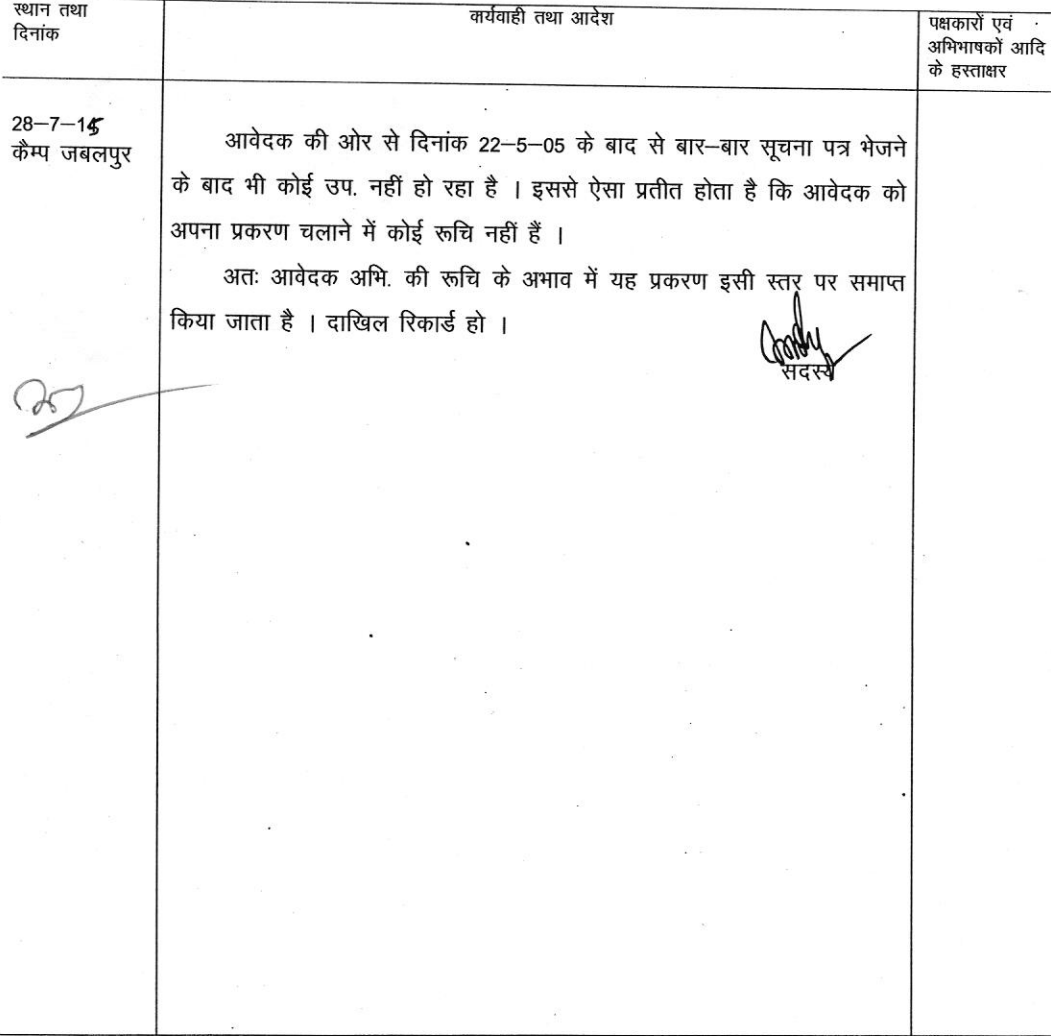 स्थान तथा
दिनांक
कार्यवाही तथा आदेश
पक्षकारों एवं
अभिभाषकों आदि
के हस्ताक्षर
28–7–15
कैम्प जबलपुर
आवेदक की ओर से दिनांक 22–5–05 के बाद से बार–बार सूचना पत्र भेजने
के बाद भी कोई उप. नहीं हो रहा है । इससे ऐसा प्रतीत होता है कि आवेदक को
अपना प्रकरण चलाने में कोई रूचि नहीं हैं ।
अतः आवेदक अभि. की रूचि के अभाव में यह प्रकरण इसी स्तर पर समाप्त
किया जाता है । दाखिल रिकार्ड हो ।
सदस्य